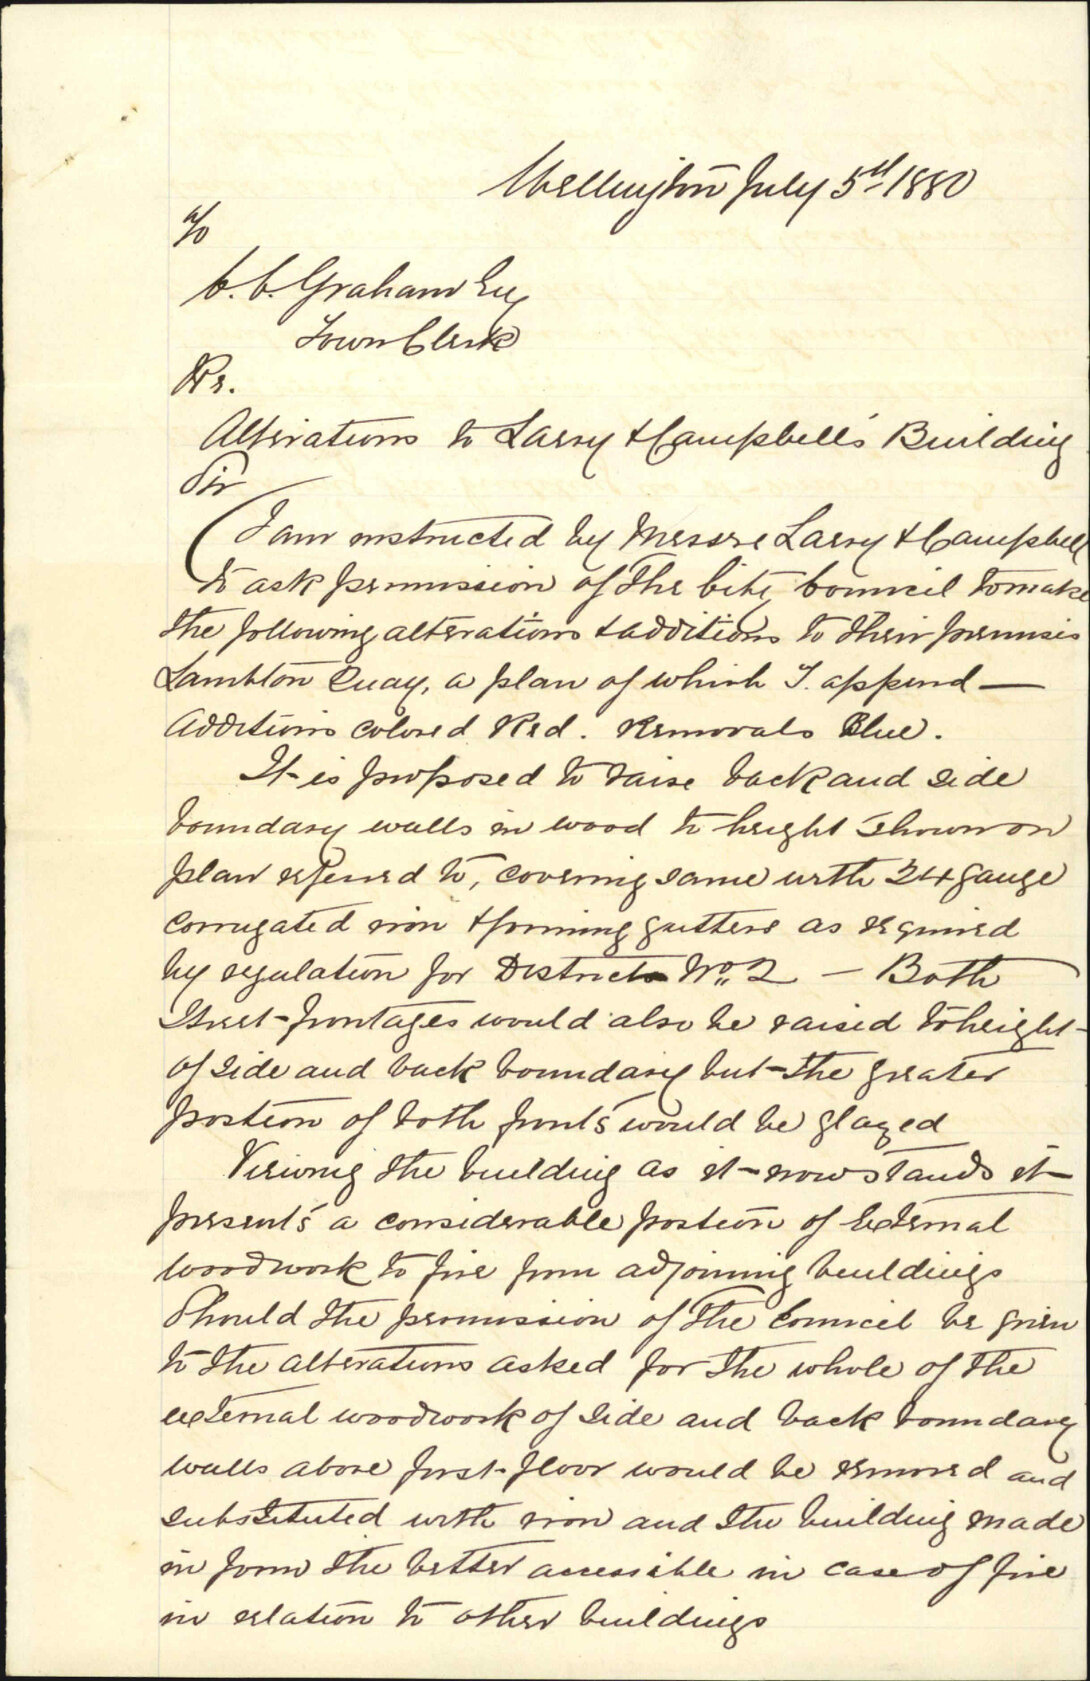 Wellington July 5th 1880
To
C. C. Graham Esq
Town Clerk
Re.
Alterations to Larry & Campbell's Building
Sir
I am instructed by Messrs Larry & Campbell
to ask permission of the City Council to make
the following alterations & additions to their premises
Lambton Quay, a plan of which I append —
Additions colored Red. Removals Blue.
It is proposed to raise back and side
boundary walls in wood to height shown on
plan referred to, covering same with 24 gauge
corrugated iron & forming gutters as required
by regulation for District No. 2 — Both
Street frontages would also be raised to height
of side and back boundary but the greater
portion of both fronts would be glazed
Viewing the building as it now stands it
presents a considerable portion of external
woodwork to fire from adjoining buildings
Should the permission of the Council be given
to the alterations asked for the whole of the
external woodwork of side and back boundary
walls above first floor would be removed and
substituted with iron and the building made
in form the better accessible in case of fire
in relation to other buildings